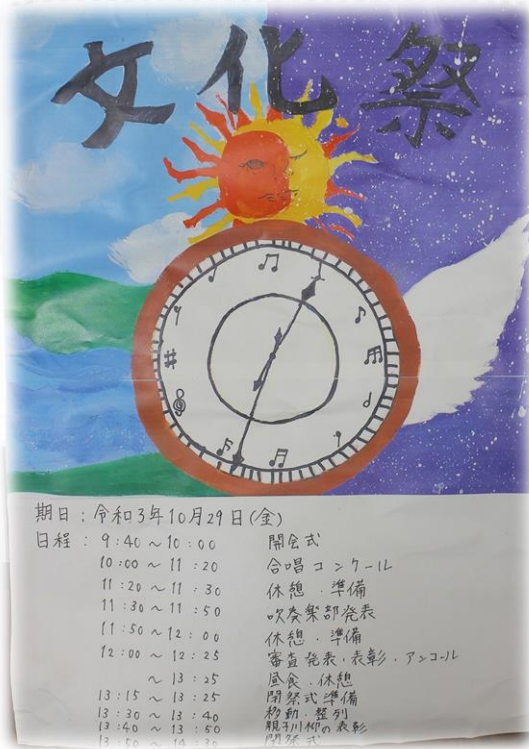 文化祭
期日:令和3年10月29日(金)
日程: 9:40 ~ 10:00 開会式
10:00 ~ 11:20 合唱コンクール
11:20 ~ 11:30 休憩・準備
11:30 ~ 11:50 吹奏楽部発表
11:50 ~ 12:00 休憩・準備
12:00 ~ 12:25 審査発表・表彰・アンコール
~ 13:25 昼食・休憩
13:15 ~ 13:25 閉祭式準備
13:30 ~ 13:40 移動・整列
13:40 ~ 13:50 親子川柳の表彰
13:50 ~ 14:30 閉祭式